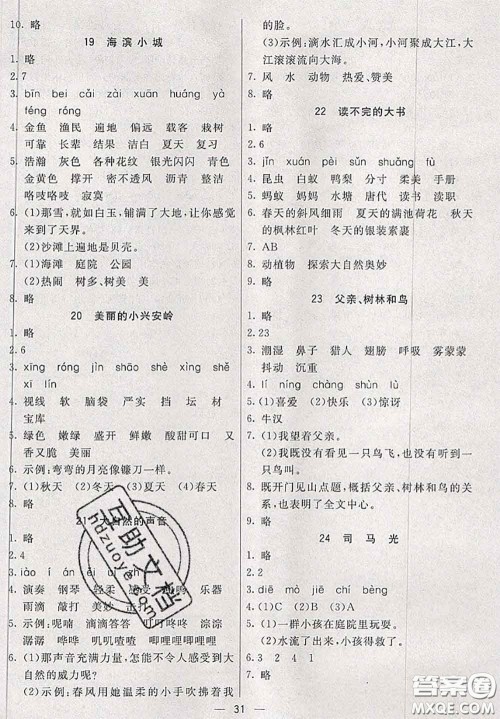 10. 略
19 海滨小城
1. 略
2. 7
3. bīn bei cǎi zài xuān huáng yà
féng róng
4. 金鱼 渔民 遍地 偏远 观赏
可靠 臣民 初夏 夏天 复习
5. 浩瀚 灰色 各种花纹 银光闪闪 青色
金黄色 撑开 密不透风
咯吱咯吱 寂寞
6. (1)那雪,就如白玉,铺满了大地,让你感觉
来到了天界。
(2)沙滩上遍地是贝壳。
7. (1)海滩 庭院 公园
(2)热闹 树多 美
8. 略
20 美丽的小兴安岭
1. 略
2. 6
3. xīng róng jìn shāo shè xìng shě
xī jiàn
4. 视线 软 脑袋 严实 挡 坛 材
宝库
5. 绿色 嫩绿 盛开 鲜嫩 酸甜可口 又
香又脆 美丽
6. 示例:弯弯的月亮像镰刀一样。
7. (1)秋天 (2)冬天 (3)夏天 (4)春天
8. 略
大自然的声音
1. 略
4. 演奏 钢琴 轻柔 感受 乐器
雨滴 敲打 美妙
5. 示例:呢喃 滴滴答答 叮叮咚咚 淙淙
潺潺 哗哗 叽叽喳喳 唧哩哩唧哩哩
6. (1)那声音充满力量,怎能不令人感受到大
自然的威力呢?
(2)示例:春风用她温柔的小手吹拂着我
的脸。
(3)示例:滴水汇成小河,小河聚成大江,大
江滚滚流向大海。
7. 风 水 动物 热爱、赞美
8. 略
22 读不完的大书
1. 略
2. 7
3. jǐn xuán pèi sǔn shuāng fù
4. 昆虫 白蚁 鸭梨 分寸 柔美 手册
5. 蚂蚁 妈妈 水塘 唐代 读书 渎职
6. 春天的斜风细雨 夏天的满池荷花 秋天
的枫林红叶 冬天的银装素裹
7. AB
8. 动植物 探索大自然奥妙
9. 略
23 父亲、树林和鸟
1. 略
2. 23
3. 潮湿 鼻子 猎人 翅膀 呼吸 雾蒙蒙
抖动 沉重
4. lí níng cháng jìn
5. (1)喜爱 (2)快乐 (3)惊讶
6. 牛汉
7. (1)我望着父亲。
(2)我从既没有看见一只飞鸟,也没有听
见一声鸟叫。
8. 既开门见山点题,又概括父亲、树林和鸟的
关系,也表明了全文中心。
9. 略
24 司马光
1. 略
2. 2
3. mò dié jiē chí bèng
4. (1)C (2)B (3)A
5. (1)一群小孩在庭院里玩耍。
(2)水流了出来,小孩得救了。
6. 3 2 4 1
7. 略
31
互助文档
hdzuoye.com
答案圈
MXQE.COM